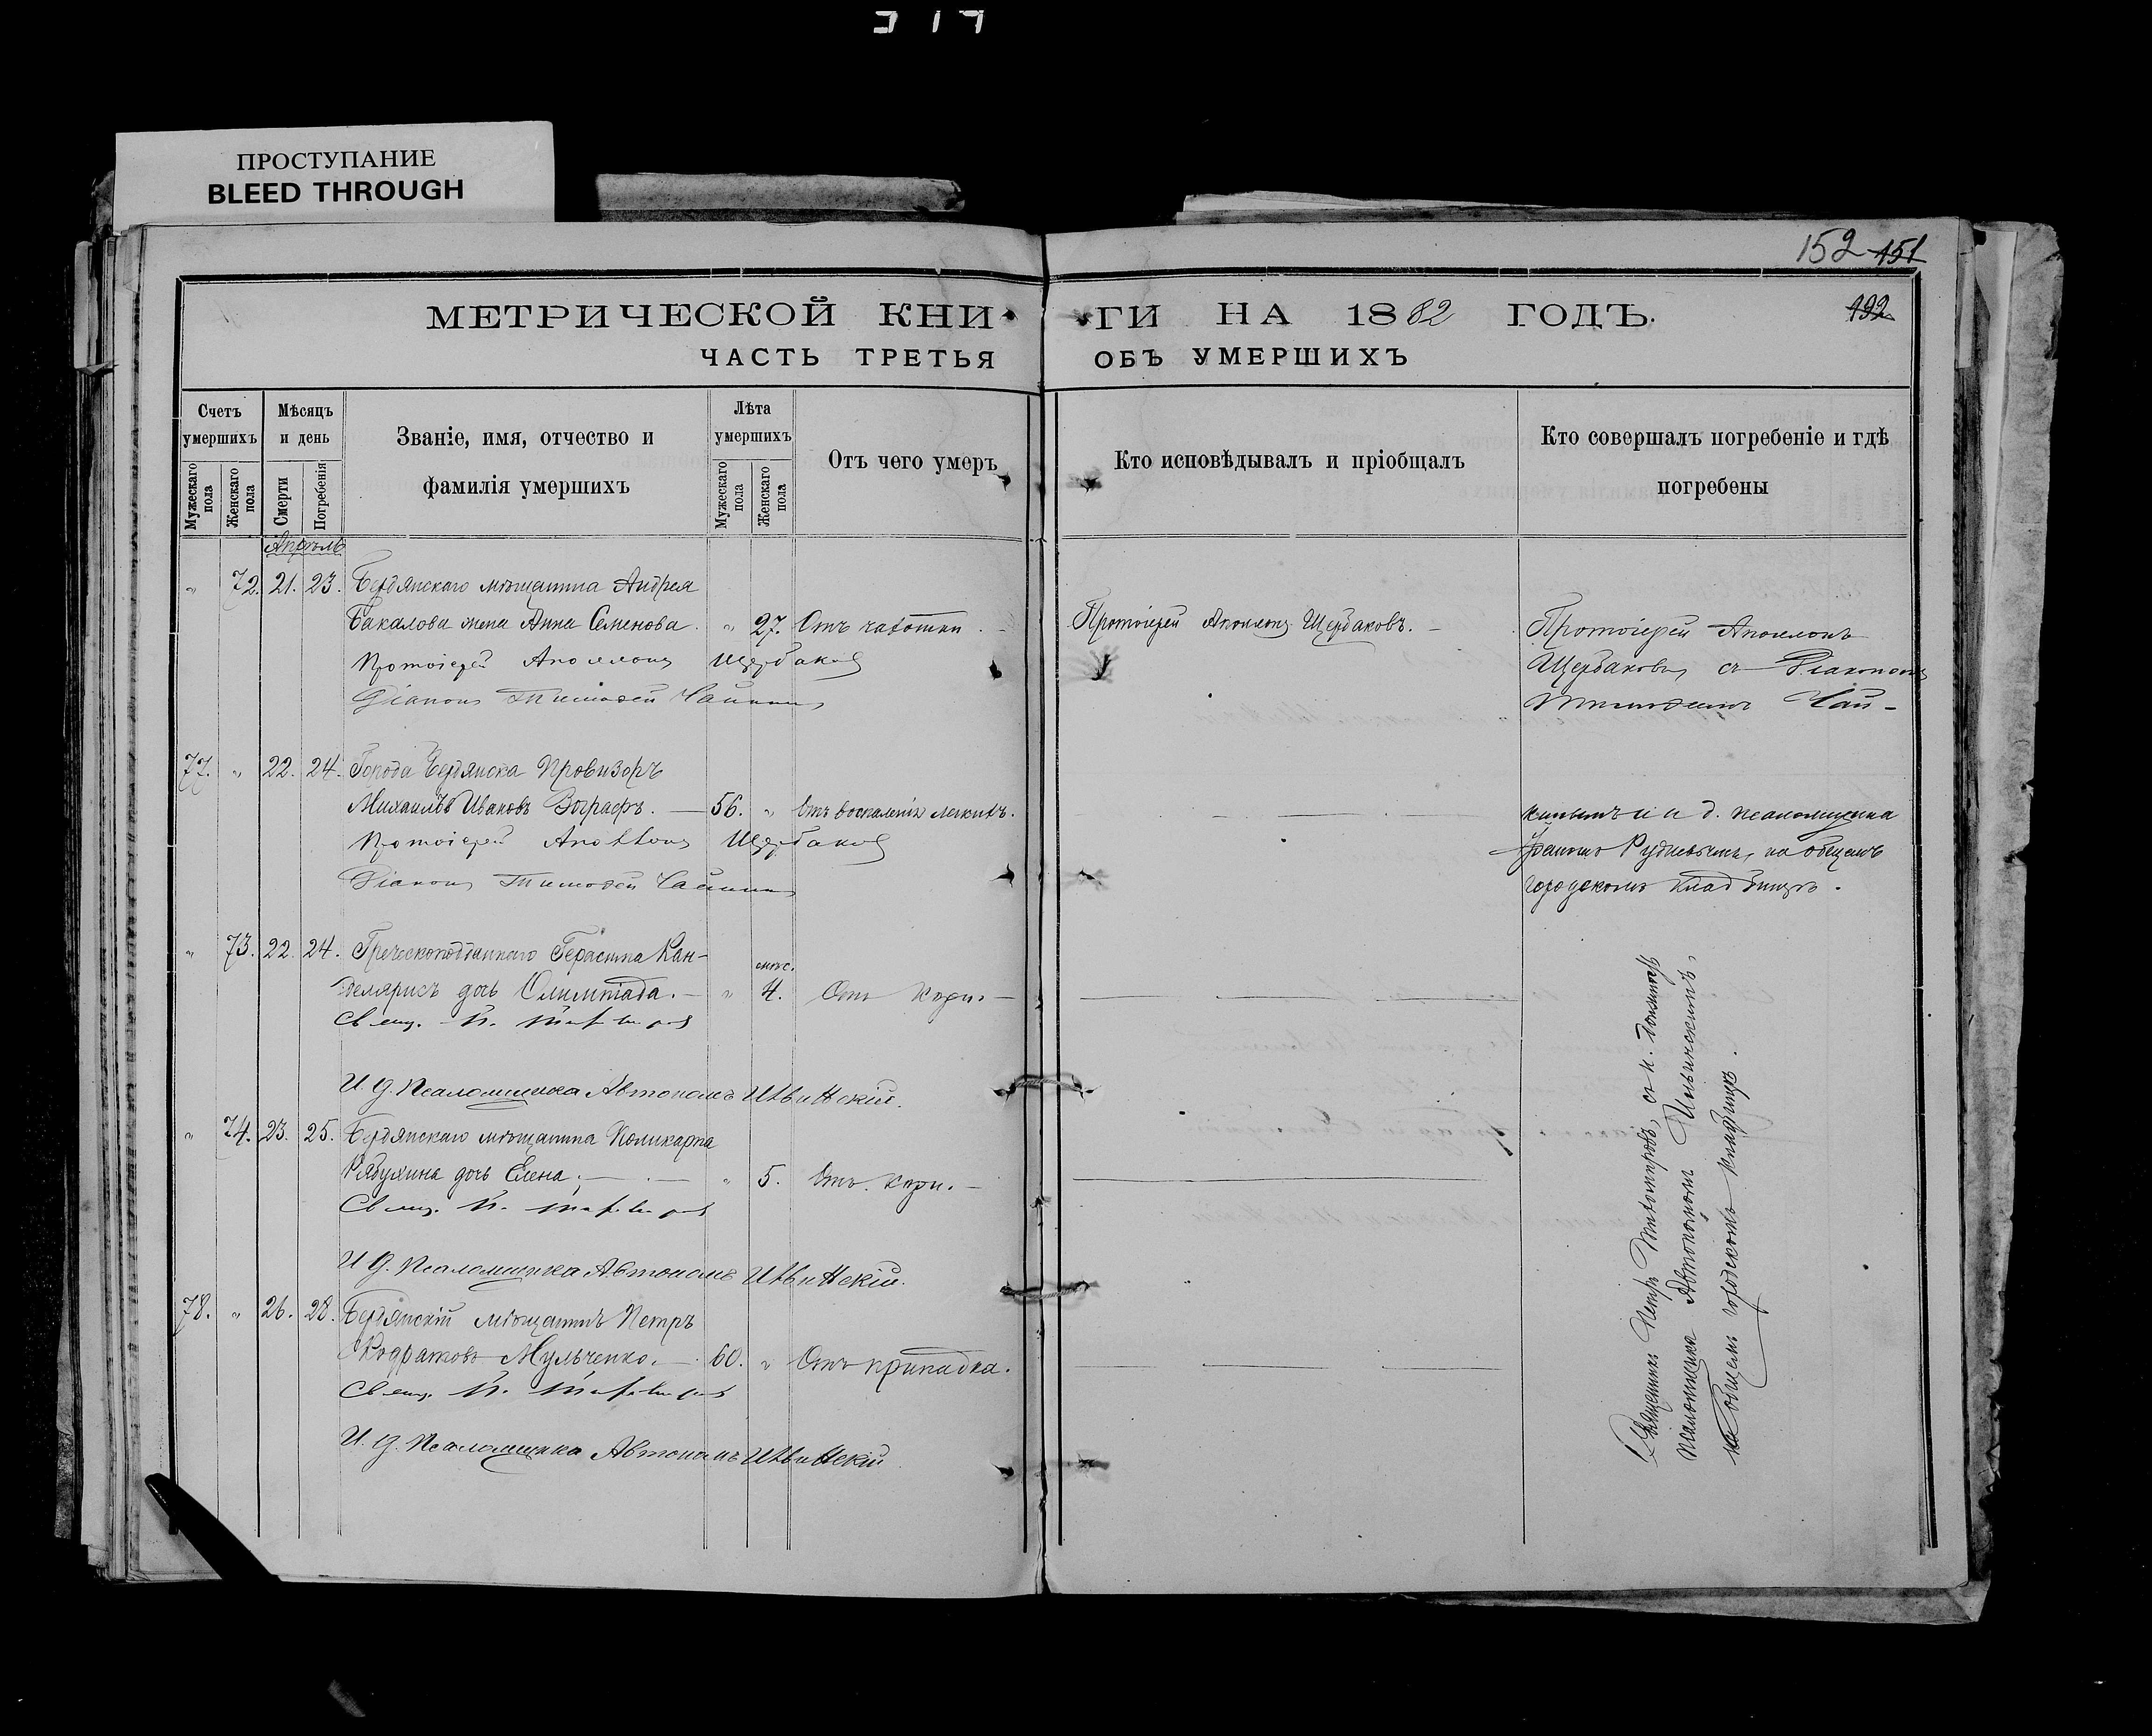 317
ПРОСТУПАНИЕ
BLEED THROUGH
152 151
192
МЕТРИЧЕСКОЙ КНИГИ НА 1882 ГОДЪ.
ЧАСТЬ ТРЕТЬЯ ОБЪ УМЕРШИХЪ
Счетъ умершихъ
Мужескаго пола
Женскаго пола
Мѣсяцъ и день
Смерти
Погребенія
Званіе, имя, отчество и фамилія умершихъ
Лѣта умершихъ
Мужескаго пола
Женскаго пола
Отъ чего умеръ
Кто исповѣдывалъ и пріобщалъ
Кто совершалъ погребеніе и гдѣ погребены
Апрѣль
" 72. 21. 23. Бердянскаго мѣщанина Андрея
Бакалова жена Анна Семенова. " 27. Отъ чахотки. Протоіерей Аполлонъ Щербаковъ. Протоіерей Аполлонъ
Протоіерей Аполлонъ Щербаковъ
Щербаковъ, съ Діакономъ
Діаконъ Тимофей Чайкинъ
Тимофеемъ Чай-
77. " 22. 24. Города Бердянска Провизоръ
Михаилъ Ивановъ Зографъ. 56. " Отъ воспаленія легкихъ.
кинымъ и и д. псаломщика
Протоіерей Аполлонъ Щербаковъ
Рудневымъ, на общемъ
Діаконъ Тимофей Чайкинъ
городскомъ кладбищѣ.
" 73. 22. 24. Греческоподданнаго Герасима Кан-
делярисъ дочь Олимпіада. " 4. мѣс. Отъ кори.
Свящ. П. Тихомировъ
И. д. Псаломщика Автономъ Ильинскій.
" 74. 23. 25. Бердянскаго мѣщанина Поликарпа
Рябухина дочь Елена; " 5. Отъ кори.
Свящ. П. Тихомировъ
И. д. Псаломщика Автономъ Ильинскій.
78. " 26. 28. Бердянскій мѣщанинъ Петръ
Кодратовъ Мульченко. 60. " Отъ припадка.
Свящ. П. Тихомировъ
И. д. Псаломщика Автономъ Ильинскій
Священникъ Петръ Тихомировъ, съ и.
псаломщика Автономомъ Ильинскимъ,
на общемъ городскомъ кладбищѣ.